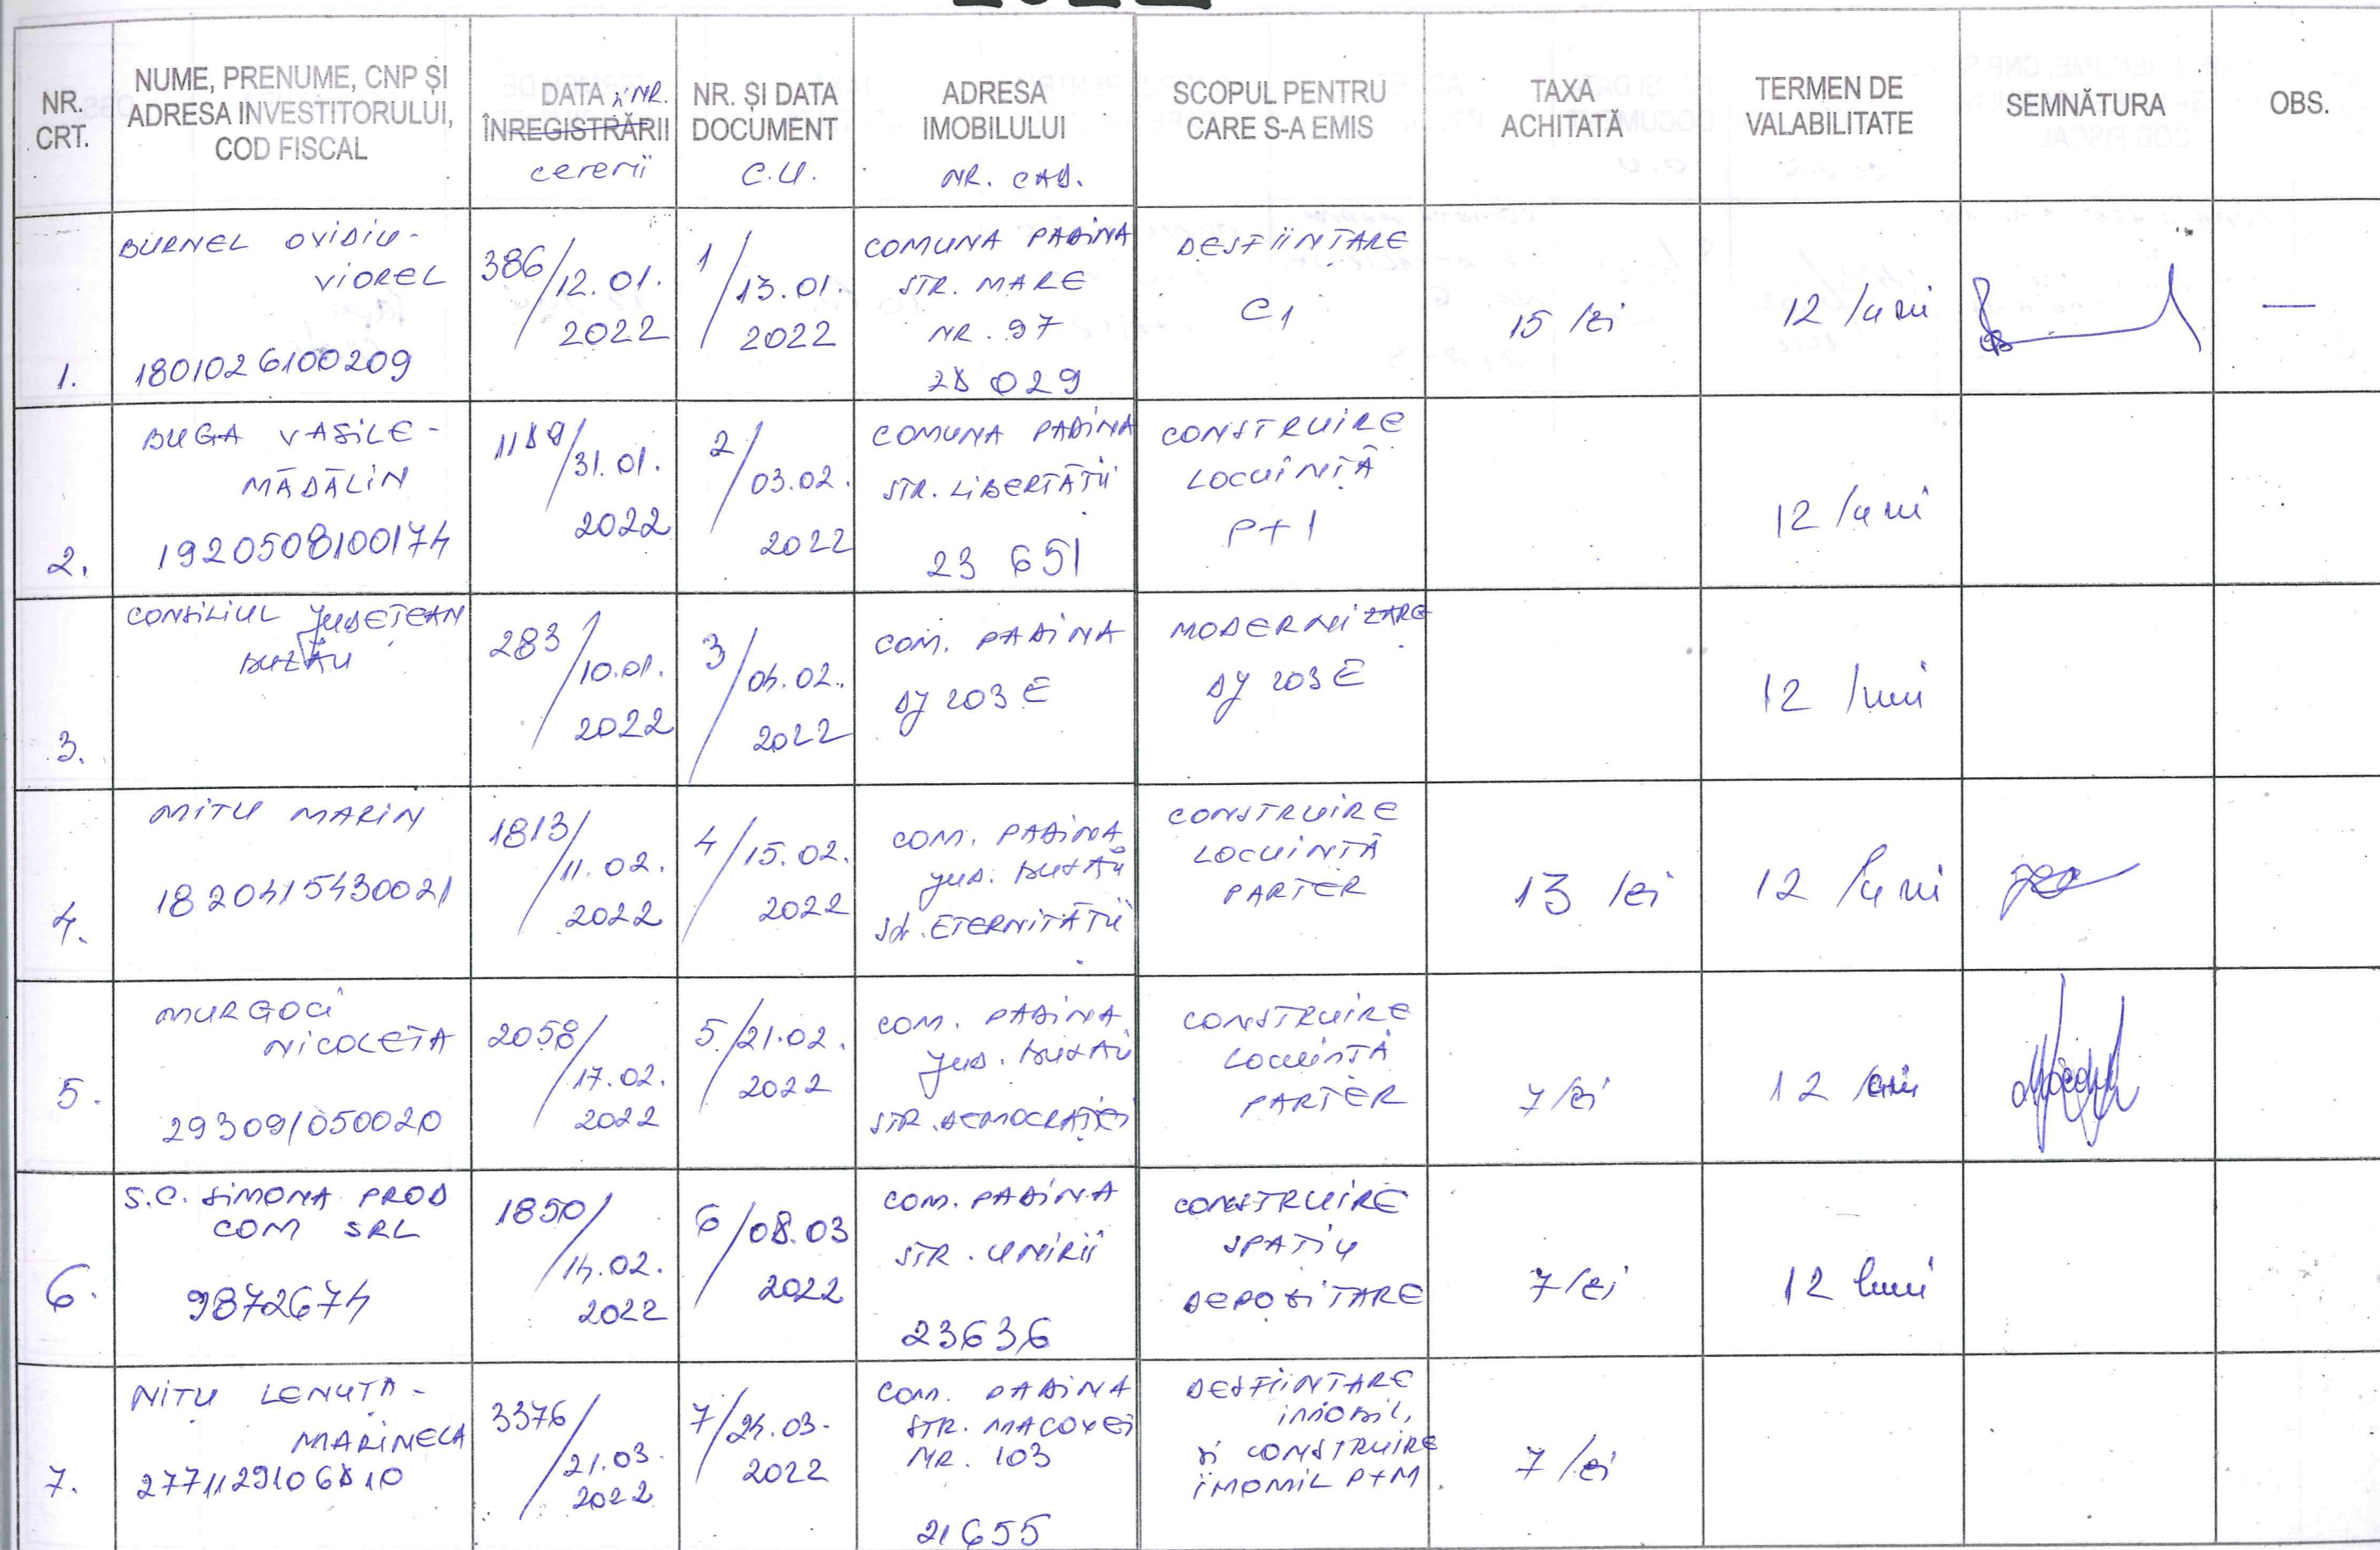 NR. CRT.
NUME, PRENUME, CNP ȘI ADRESA INVESTITORULUI, COD FISCAL
DATA și NR. ÎNREGISTRĂRII cererii
NR. ȘI DATA DOCUMENT C.U.
ADRESA IMOBILULUI NR. CAD.
SCOPUL PENTRU CARE S-A EMIS
TAXA ACHITATĂ
TERMEN DE VALABILITATE
SEMNĂTURA
OBS.
1.
BURNEL OVIDIU-
VIOREL
1801026100209
386/12.01.
2022
1/13.01.
2022
COMUNA PADINA
STR. MARE
NR. 97
28029
DESFIINTARE
C1
15 lei
12 luni
—
2.
BUGA VASILE-
MĂDĂLIN
1920508100174
1189/31.01.
2022
2/03.02.
2022
COMUNA PADINA
STR. LIBERTĂȚII
23 651
CONSTRUIRE
LOCUINȚĂ
P+1
12 luni
3.
CONSILIUL JUDEȚEAN
BUZĂU
283/10.01.
2022
3/04.02.
2022
COM. PADINA
DJ 203 E
MODERNIZARE
DJ 203 E
12 luni
4.
MITU MARIN
1820415430021
1813/11.02.
2022
4/15.02.
2022
COM. PADINA
JUD. BUZĂU
Str. ETERNITĂȚII
CONSTRUIRE
LOCUINȚĂ
PARTER
13 lei
12 luni
5.
MURGOCI
NICOLETA
293091050020
2058/17.02.
2022
5/21.02.
2022
COM. PADINA
JUD. BUZĂU
STR. DEMOCRAȚIEI
CONSTRUIRE
LOCUINȚĂ
PARTER
7 lei
12 luni
6.
S.C. SIMONA PROD
COM SRL
9872674
1850/14.02.
2022
6/08.03
2022
COM. PADINA
STR. UNIRII
23636
CONSTRUIRE
SPAȚIU
DEPOZITARE
7 lei
12 luni
7.
NIȚU LENUȚA-
MARINELA
2771129106810
3376/21.03.
2022
7/24.03.
2022
COM. PADINA
STR. MACOVEI
NR. 103
21655
DESFIINTARE
IMOBIL,
și CONSTRUIRE
IMOMIL P+M
7 lei